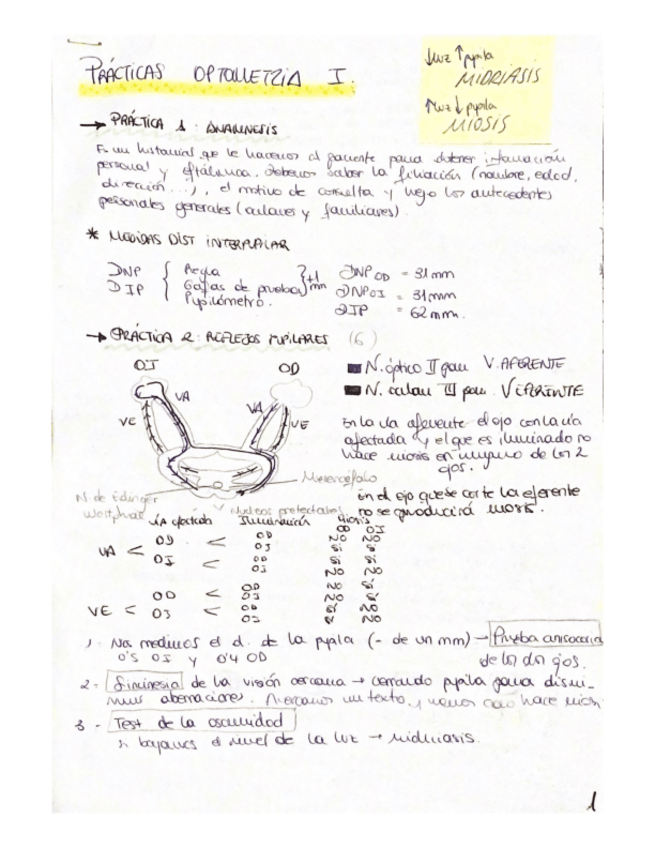 PRÁCTICAS OPTOMETRÍA I.
↓luz ↑pupila
MIDRIASIS
↑luz ↓pupila
MIOSIS
→ PRÁCTICA 1: ANAMNESIS
Es un historial que le hacemos al paciente para obtener información
personal y oftálmica. Debemos saber la filiación (nombre, edad,
dirección...), el motivo de consulta y luego los antecedentes
personales generales (oculares y familiares).
* MEDIDAS DIST INTERPUPILAR
DNP
DIP
Regla
Gafas de prueba
Pupilómetro.
±1 mm
DNP OD = 31mm
DNP OI = 31mm
DIP = 62mm.
→ PRÁCTICA 2: REFLEJOS PUPILARES (6)
OI OD
VA VA
VE VE
N. óptico II par V. AFERENTE
N. ocular III par V EFERENTE
En la vía aferente el ojo con la vía
afectada y el que es iluminado no
hace miosis en ninguno de los 2
ojos.
Mesencéfalo
N. de Edinger
Westphal
Núcleos pretectales
En el ojo que se corte la eferente
no se producirá miosis.
Vía afectada Iluminación Miosis
OD OI
VA < OD < OD NO NO
OI SI SI
OI < OD SI SI
OI NO NO
VE < OD < OD NO SI
OI NO SI
OI < OD SI NO
OI SI NO
1- Nos medimos el d. de la pupila (- de un mm) → Prueba anisocoria
0'5 OI y 0'4 OD de los dos ojos.
2- Sininesia de la visión cercana → cerrando pupila para dismi-
nuir aberraciones. Acercamos un texto, y vemos como hace miosis
3- Test de la oscuridad
si bajamos el nivel de la luz → midriasis.
1